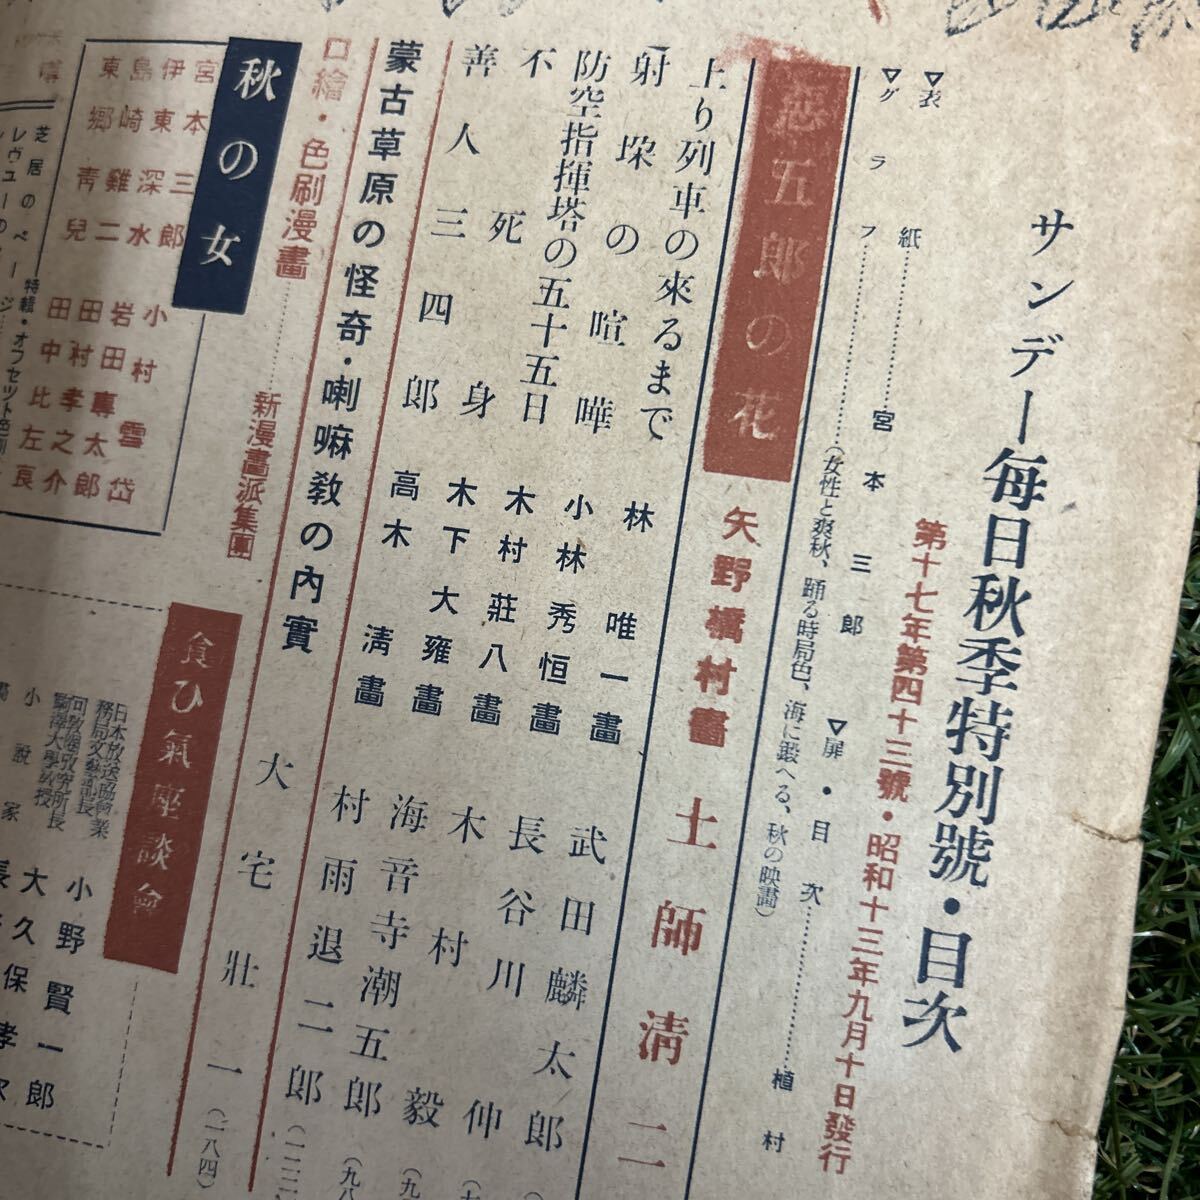 サンデー每日秋季特別號・目次
第十七年第四十三號・昭和十三年九月十日發行
▽表紙……宮本三郎
▽扉・目次……植村
▽グラフ……(女性と爽秋、踊る時局色、海に鍛へる、秋の映畵)
惡五郎の花 矢野橋村畵 土師淸二
上り列車の來るまで 林唯一畵 武田麟太郎
射垜の喧嘩 小林秀恒畵 長谷川伸
防空指揮塔の五十五日 木村莊八畵 木村毅
不死身 木下大雍畵 海音寺潮五郎
善人三四郎 高木淸畵 村雨退二郎
蒙古草原の怪奇・喇嘛敎の內實 大宅壯一(一八四)
口繪・色刷漫畵……新漫畵派集團
秋の女
宮本三郎
伊東深水
島崎雞二
東鄕靑兒
小村雪岱
岩田專太郎
田村孝之介
田中比左良
特輯・オフセツト色刷
芝居のページ
レヴユーのページ
食ひ氣座談會
日本放送協會業務局文藝課長 小野賢一郎
大久保孝
小說家 長